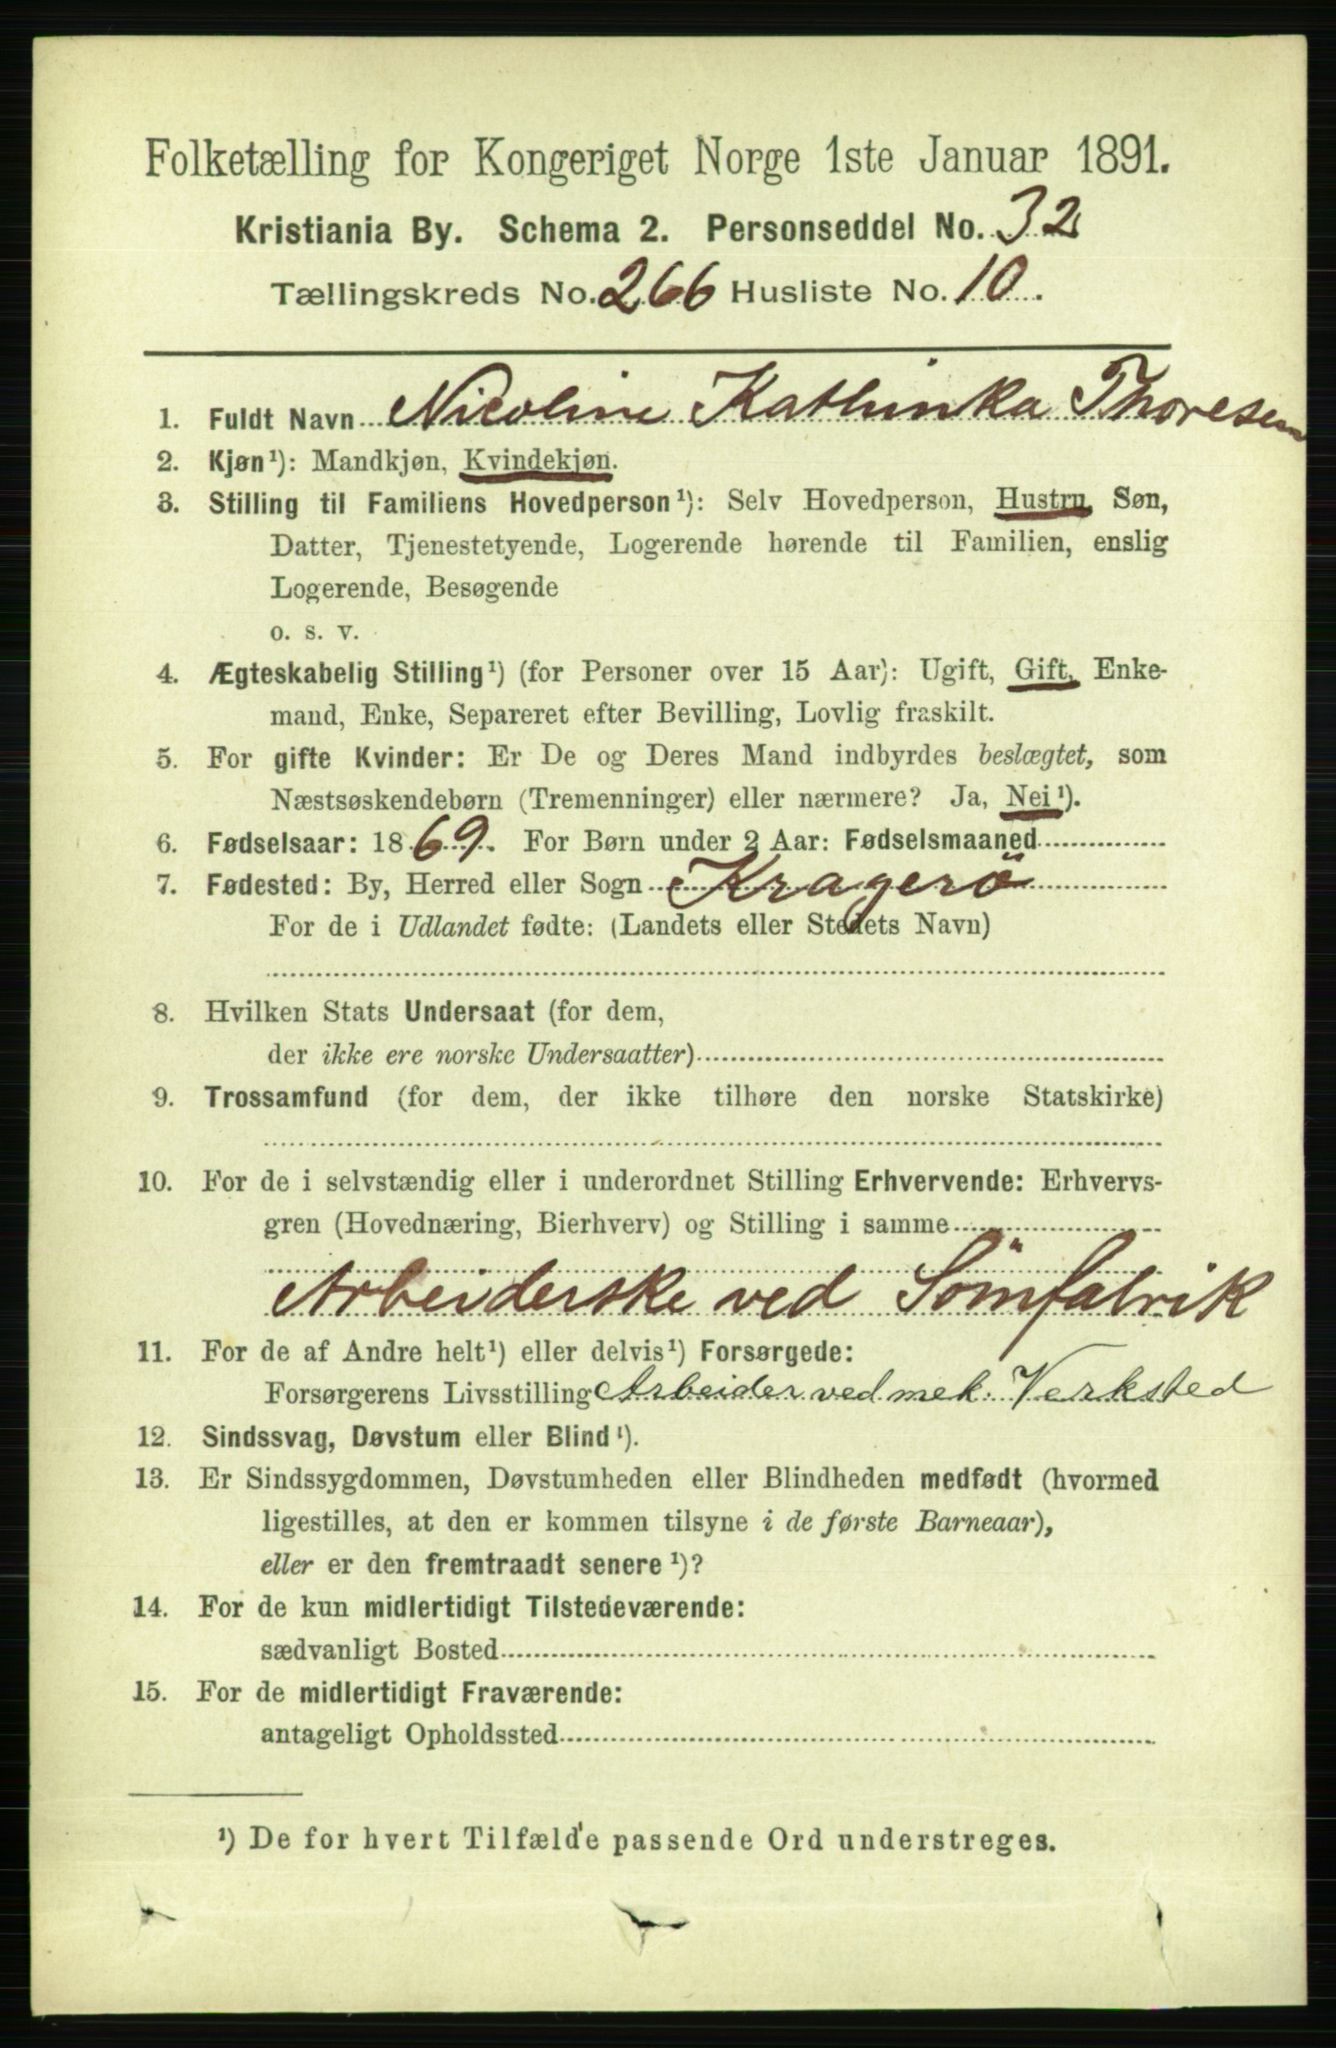 Folketælling for Kongeriget Norge 1ste Januar 1891.
Kristiania By. Schema 2. Personseddel No. 32
Tællingskreds No. 266 Husliste No. 10.
1. Fuldt Navn Nicoline Kathinka Thoresen
2. Kjøn¹): Mandkjøn, Kvindekjøn.
3. Stilling til Familiens Hovedperson¹): Selv Hovedperson, Hustru, Søn,
Datter, Tjenestetyende, Logerende hørende til Familien, enslig
Logerende, Besøgende
o. s. v.
4. Ægteskabelig Stilling¹) (for Personer over 15 Aar): Ugift, Gift, Enke-
mand, Enke, Separeret efter Bevilling, Lovlig fraskilt.
5. For gifte Kvinder: Er De og Deres Mand indbyrdes beslægtet, som
Næstsøskendebørn (Tremenninger) eller nærmere? Ja, Nei¹).
6. Fødselsaar: 1869. For Børn under 2 Aar: Fødselsmaaned
7. Fødested: By, Herred eller Sogn Kragerö
For de i Udlandet fødte: (Landets eller Stedets Navn)
8. Hvilken Stats Undersaat (for dem,
der ikke ere norske Undersaatter)
9. Trossamfund (for dem, der ikke tilhøre den norske Statskirke)
10. For de i selvstændig eller i underordnet Stilling Erhvervende: Erhvervs-
gren (Hovednæring, Bierhverv) og Stilling i samme
Arbeiderske ved Sömfabrik
11. For de af Andre helt¹) eller delvis¹) Forsørgede:
Forsørgerens Livsstilling Arbeider ved mek. Verksted
12. Sindssvag, Døvstum eller Blind¹).
13. Er Sindssygdommen, Døvstumheden eller Blindheden medfødt (hvormed
ligestilles, at den er kommen tilsyne i de første Barneaar),
eller er den fremtraadt senere¹)?
14. For de kun midlertidigt Tilstedeværende:
sædvanligt Bosted
15. For de midlertidigt Fraværende:
antageligt Opholdssted
¹) De for hvert Tilfælde passende Ord understreges.